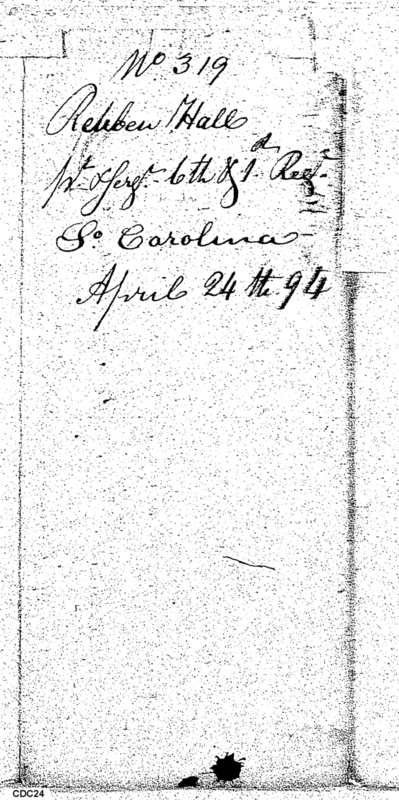 No 319
Reuben Hall
pt. & Sergt. 6th & 1st Regt.
So Carolina
April 24th 94
CDC24